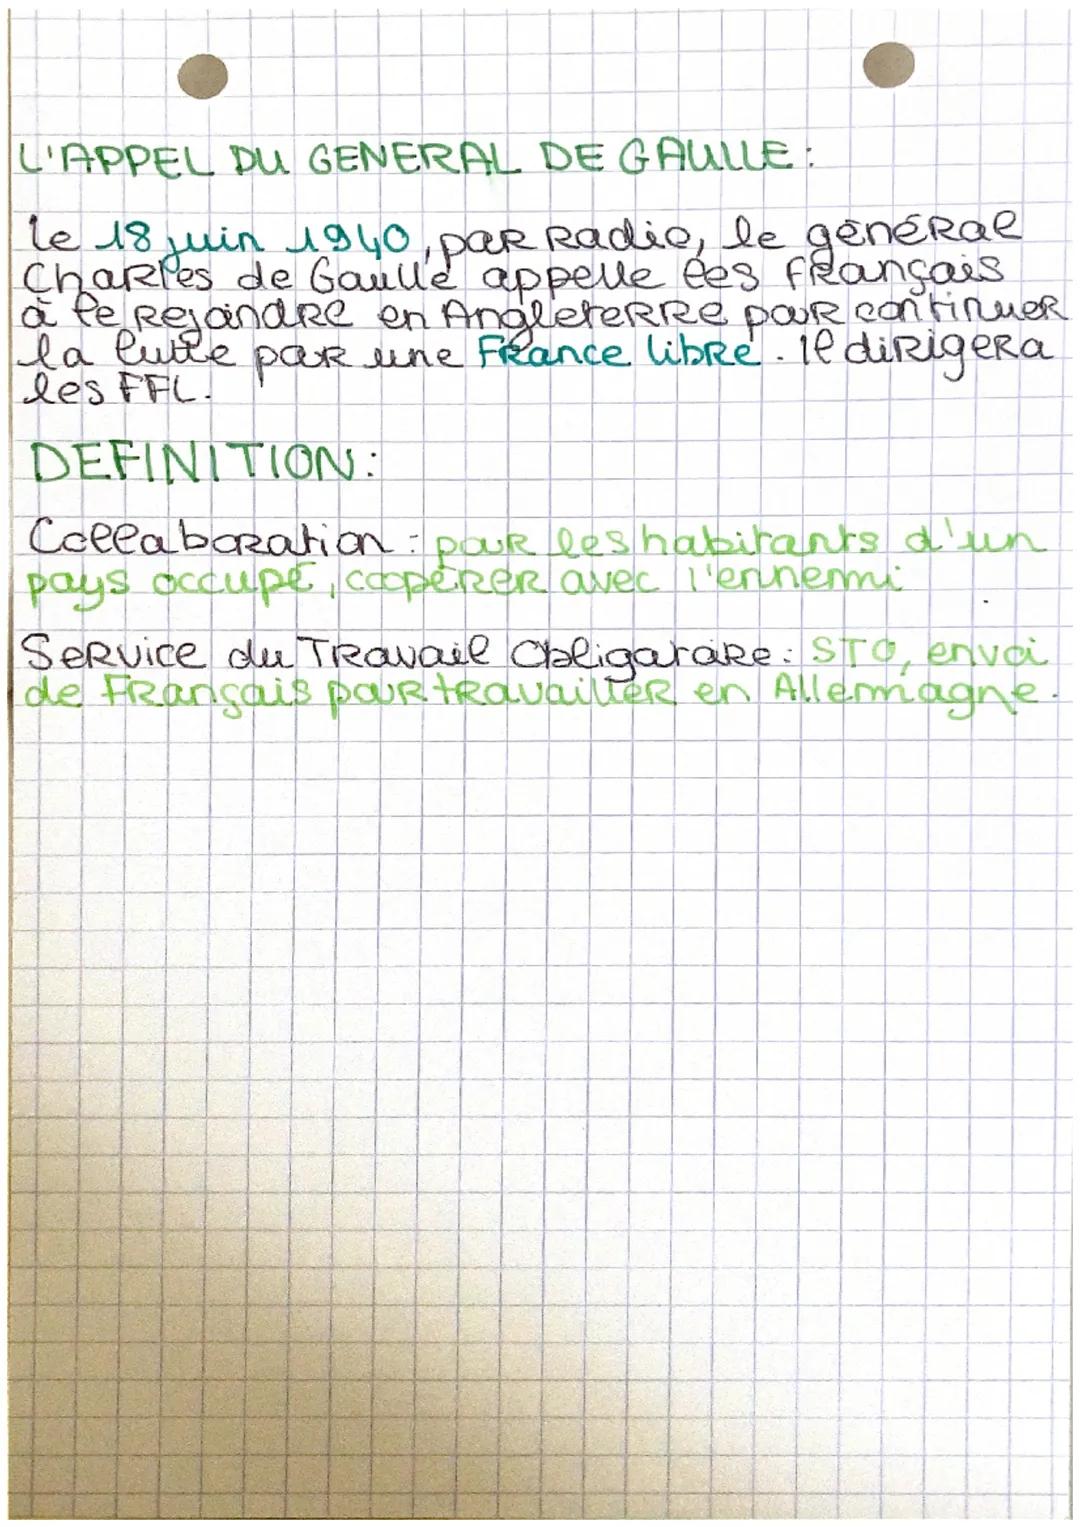 L'APPEL DU GENERAL DE GAULLE :
le 18 juin 1940, par radio, le général
Charles de Gaulle appelle les français
à le rejoindre en Angleterre pour continuer
la lutte pour une France libre. Il dirigera
les FFL.
DEFINITION :
Collaboration : pour les habitants d'un
pays occupé, coopérer avec l'ennemi
Service du Travail Obligatoire : STO, envoi
de Français pour travailler en Allemagne.